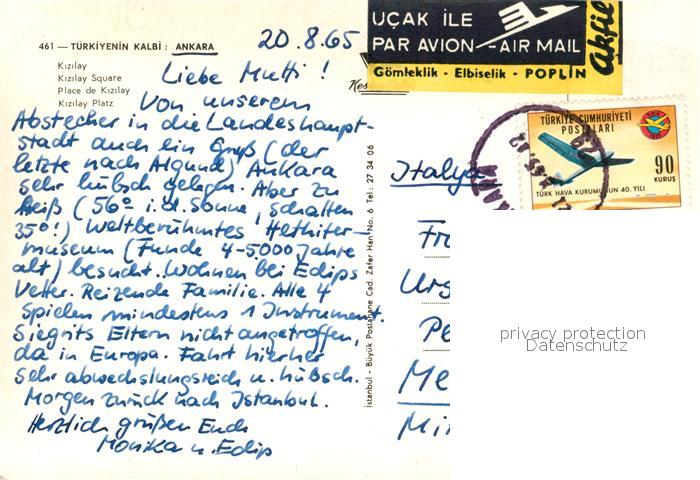 461 — TÜRKİYENİN KALBİ : ANKARA
Kızılay
Kızılay Square
Place de Kızılay
Kızılay Platz
20.8.65
Liebe Mutti !
Von unserem
Abstecher in die Landeshaupt-
stadt auch ein Gruß (der
letzte nach Algund) Ankara
sehr hübsch gelegen. Aber zu
heiß (56° i.d. Sonne, Schatten
35°!) Weltberühmtes Hethiter-
museum (Funde 4-5000 Jahre
alt) besucht. Wohnen bei Edips
Vetter. Reizende Familie. Alle 4
spielen mindestens 1 Instrument.
Siegrits Eltern nicht angetroffen,
da in Europa. Fahrt hierher
sehr abwechslungsreich u. hübsch.
Morgen zurück nach Istanbul.
Herzlich grüßen Euch
Monika u. Edip
Kes
İstanbul - Büyük Postahane Cad. Zafer Han No. 6 Tel : 27 34 06
UÇAK İLE
PAR AVION - AIR MAIL
Gömleklik - Elbiselik - POPLİN
Akfil
TÜRKİYE CUMHURİYETİ
POSTALARI
90
KURUŞ
TÜRK HAVA KURUMUNUN 40. YILI
Italya
Fr
Urs
Pe
Me
Mi
privacy protection
Datenschutz